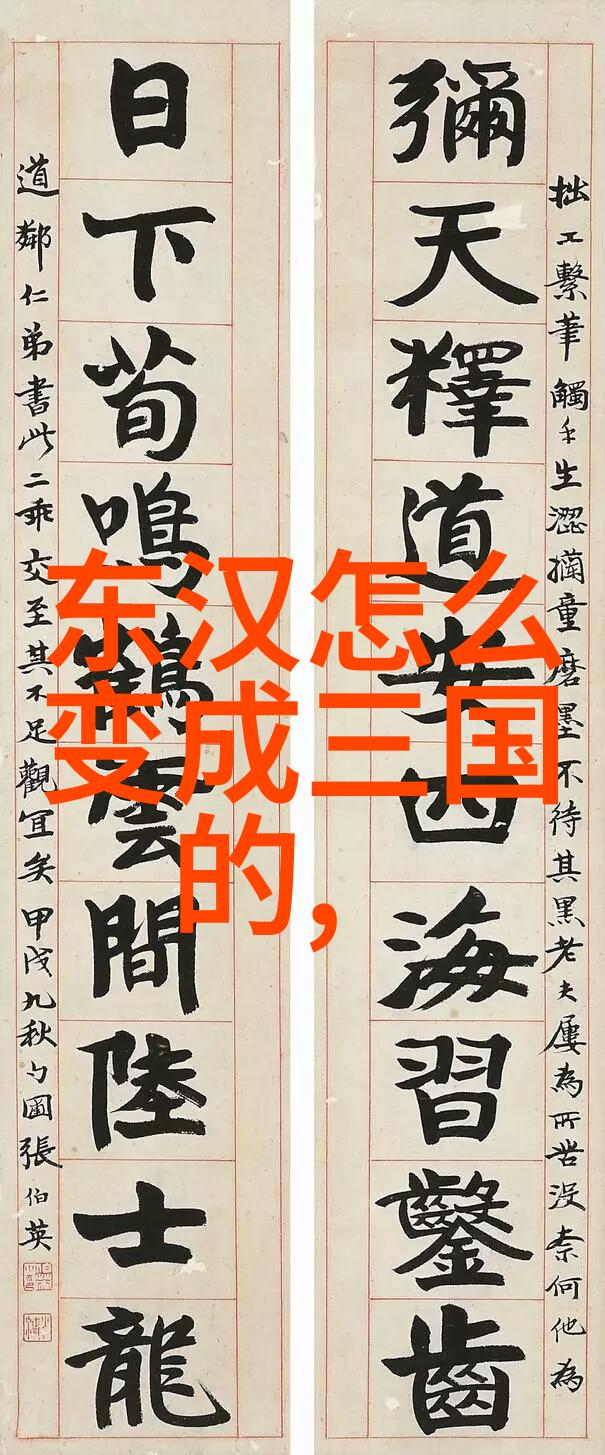 拙工繫筆觸手生澀擩童磨墨不待其黑老夫屢為所苦沒奈何他為
彌天釋道安四海習鑿齒
日下荀鳴鶴雲間陸士龍
道鄰仁弟書此二乖交至其不足觀宜矣甲戌九秋勺圃張伯英
东汉怎么
变成三国
的，